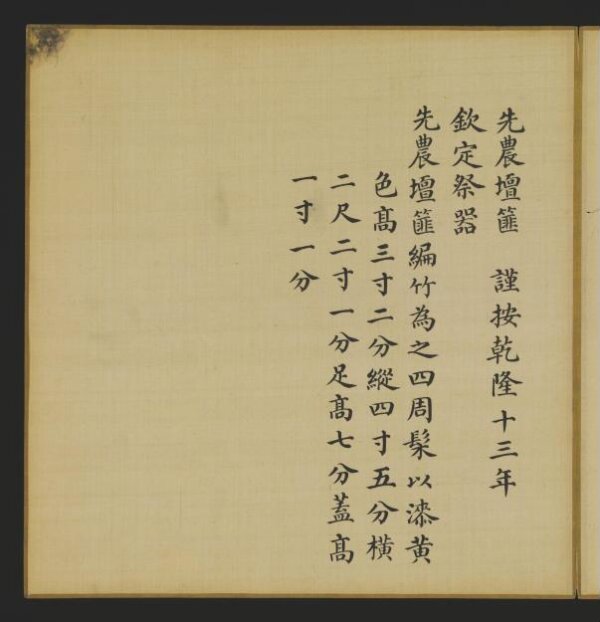 先農壇篚　謹按乾隆十三年
欽定祭器
先農壇篚編竹為之四周髹以漆黃
色髙三寸二分縱四寸五分橫
二尺二寸一分足髙七分蓋髙
一寸一分